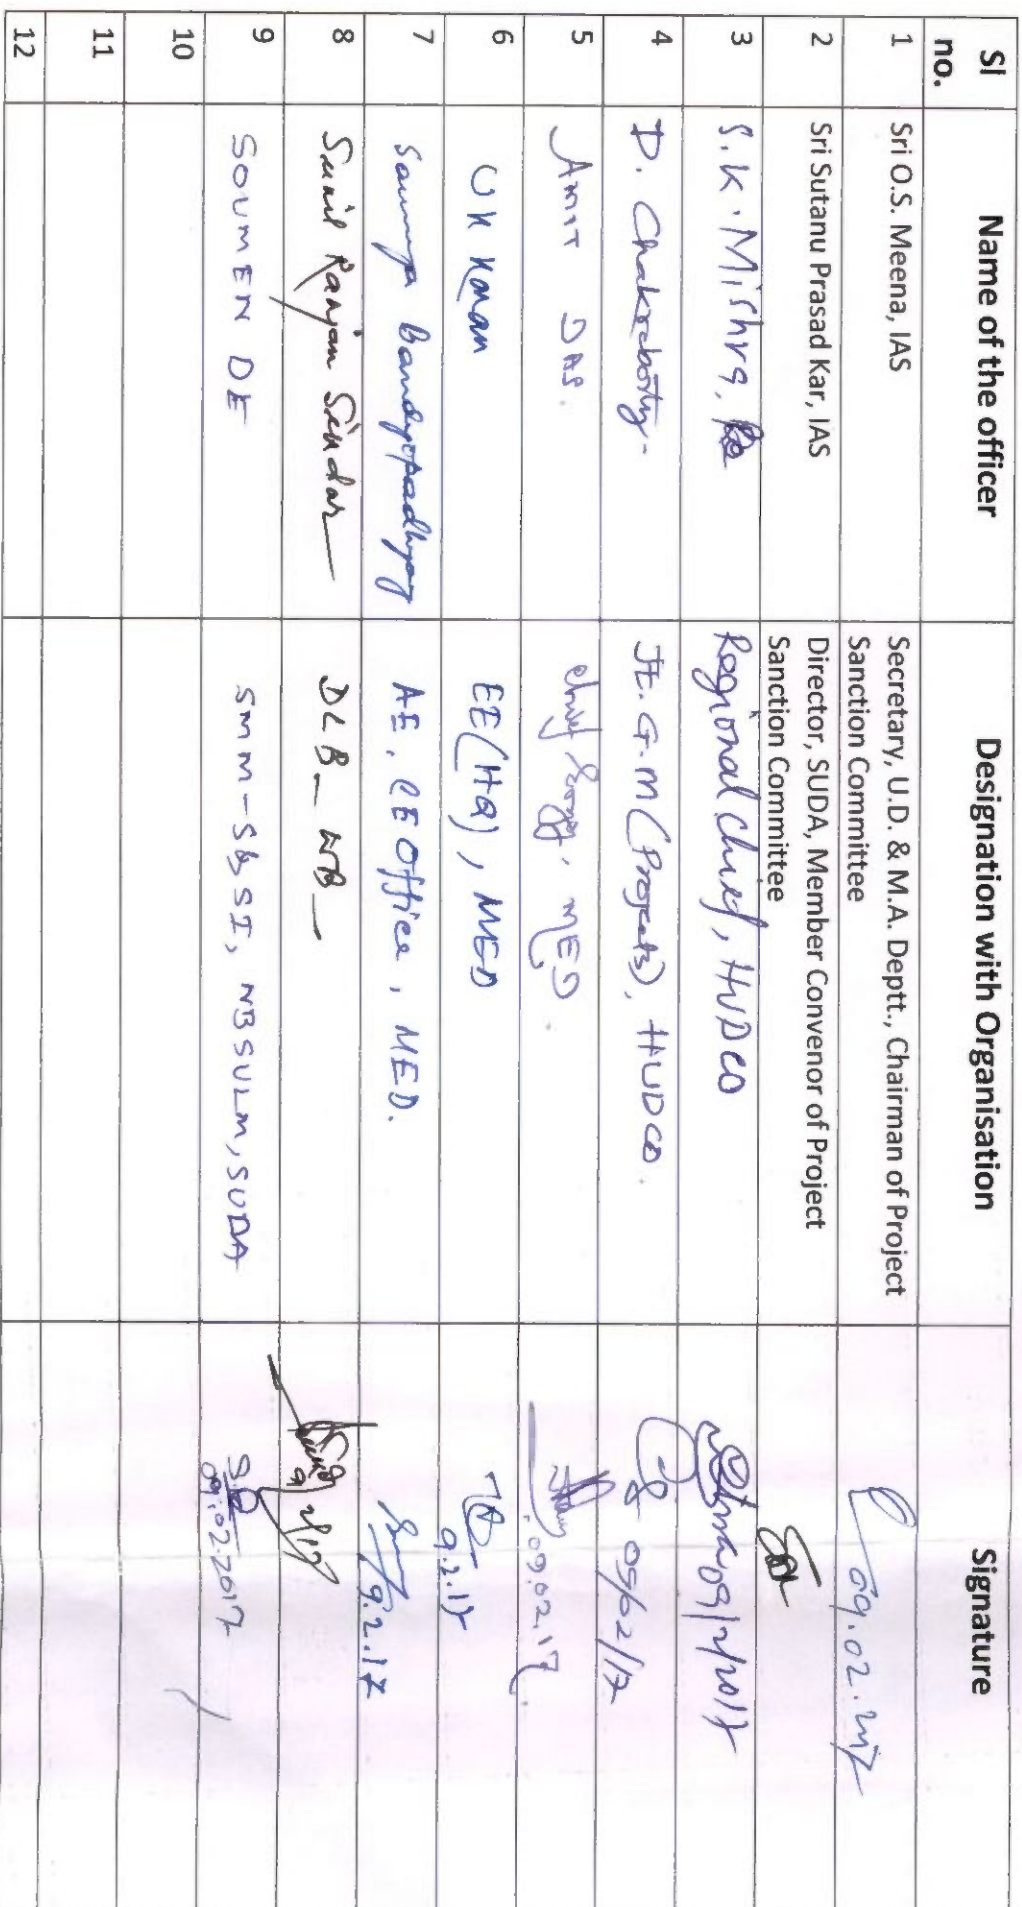 Sl no. Name of the officer Designation with Organisation Signature
1 Sri O.S. Meena, IAS Secretary, U.D. & M.A. Deptt., Chairman of Project
Sanction Committee 09.02.2017
2 Sri Sutanu Prasad Kar, IAS Director, SUDA, Member Convenor of Project
Sanction Committee
3 S.K. Mishra, Regional Chief, HUDCO 09/2/2017
4 D. Chakraborty Jt. G.M (Projects), HUDCO. 09/02/17
5 AMIT DAS. Chief Engg, MED 09.02.17
6 EE(HQ), MED 9.2.17
7 Saumya Bandyopadhyay AE, CE Office, MED. 9.2.17
8 Sunil Ranjan Sikdar DLB WB 9/2/17
9 SOUMEN DE SMM-S& SI, WBSULM, SUDA 09.02.2017
10
11
12